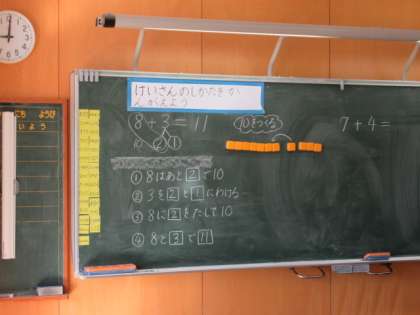 けいさんのしかたをか
んがえよう
8+3=11
10 2 1
10をつくる
7+4=
①8はあと2で10
②3を2と1にわける
③8に2をたして10
④8と3で11
ようび